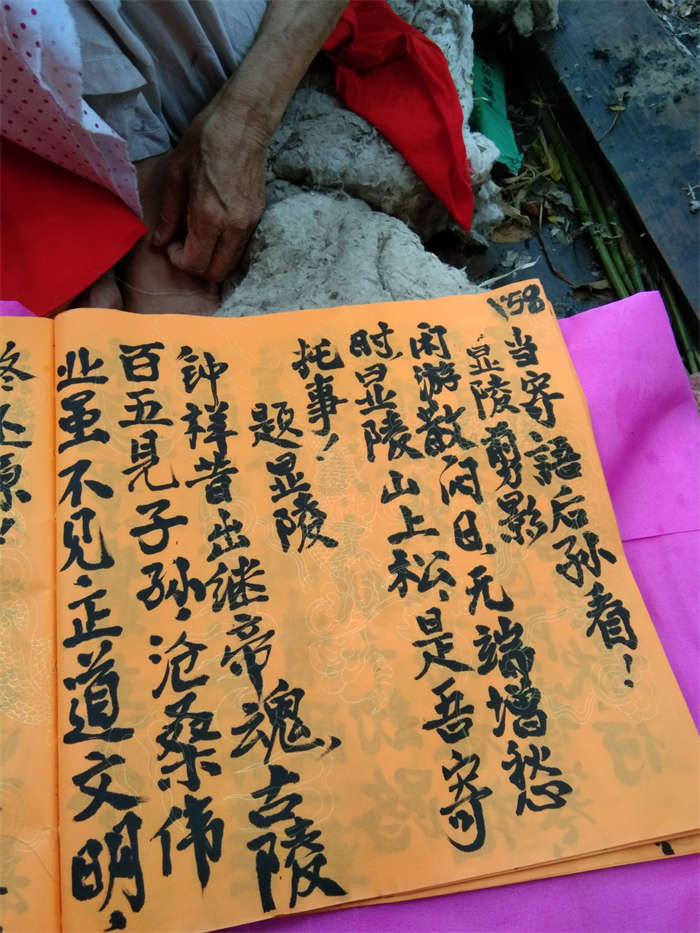 158
当守語后孙看！
显陵剪影
闲游散闷日，无端增愁
时，显陵山上松，是吾寄
托事！
题显陵
钟祥昔出继帝魂，古陵
百五见子孙，沧桑伟
业虽不见，正道文明，
还原！